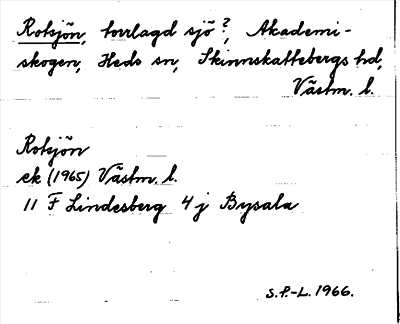 Rotsjön, torrlagd sjö?, Akademi-
skogen, Heds sn, Skinnskattebergs hd,
Västm. l.
Rotsjön
ek (1965) Västm. l.
11 F Lindesberg 4 j Bysala
S.P.-L. 1966.